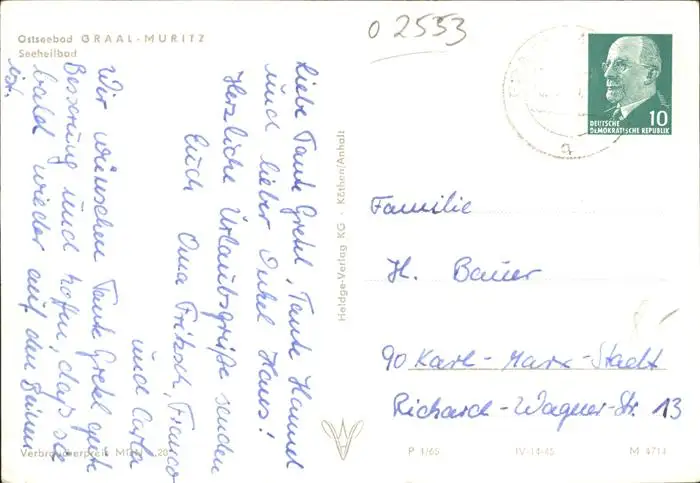 Ostseebad GRAAL-MURITZ
Seeheilbad
02553
DEUTSCHE
DEMOKRATISCHE REPUBLIK
10
Liebe Tante Gretel, Tante Hannel
und lieber Onkel Hans!
Herzliche Urlaubsgrüße senden
Euch Oma Fritsch, Franco
und Carla
Wir wünschen Tante Gretel gute
Besserung und hoffen, dass sie
bald wieder auf den Beinen
ist.
Heldge-Verlag KG - Köthen/Anhalt
Familie
H. Bauer
90 Karl-Marx-Stadt
Richard-Wagner-Str. 13
Verbraucherpreis MDN -,20
P 1/65
IV-14-45
M 4714